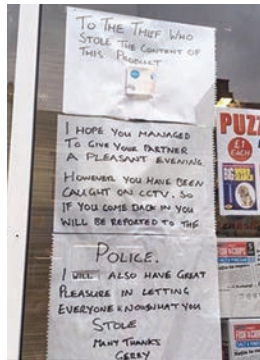 TO THE THIEF WHO
STOLE THE CONTENT OF
THIS PRODUCT
I HOPE YOU MANAGED
TO GIVE YOUR PARTNER
A PLEASANT EVENING.
HOWEVER YOU HAVE BEEN
CAUGHT ON CCTV. SO
IF YOU COME BACK IN YOU
WILL BE REPORTED TO THE
POLICE.
I WILL ALSO HAVE GREAT
PLEASURE IN LETTING
EVERYONE KNOW WHAT YOU
STOLE
MANY THANKS
GERRY
PUZZ
£1
EACH
BIG
FISH & CHIPS
FISH & CHIPS